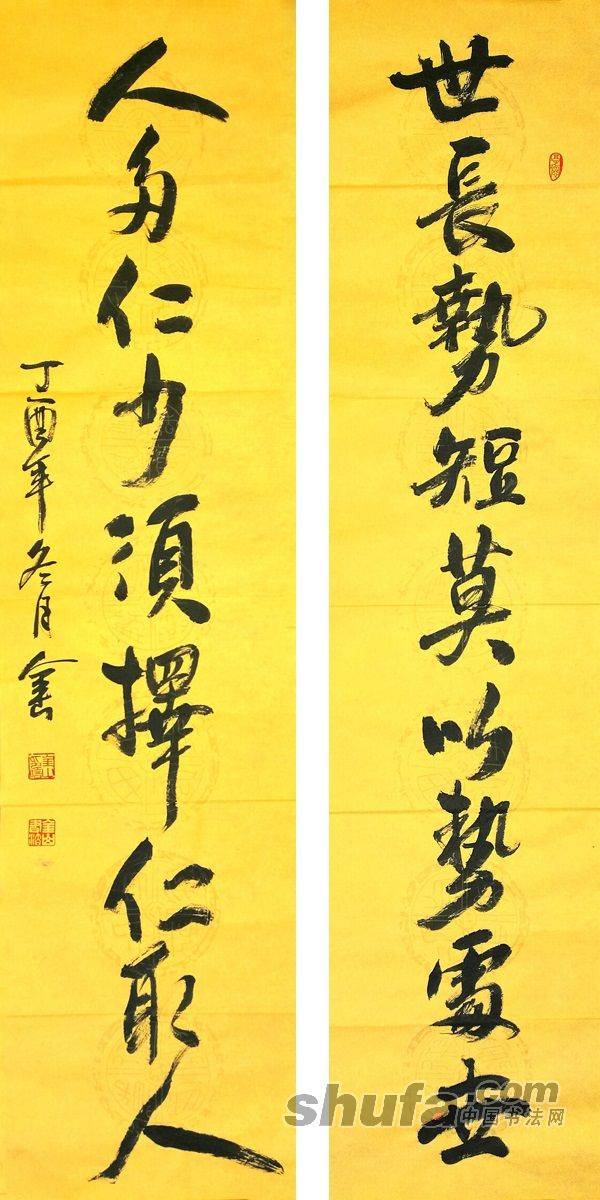 世長勢短莫以勢處世
人多仁少須擇仁取人
丁酉年冬月
shufa.com
中国书法网